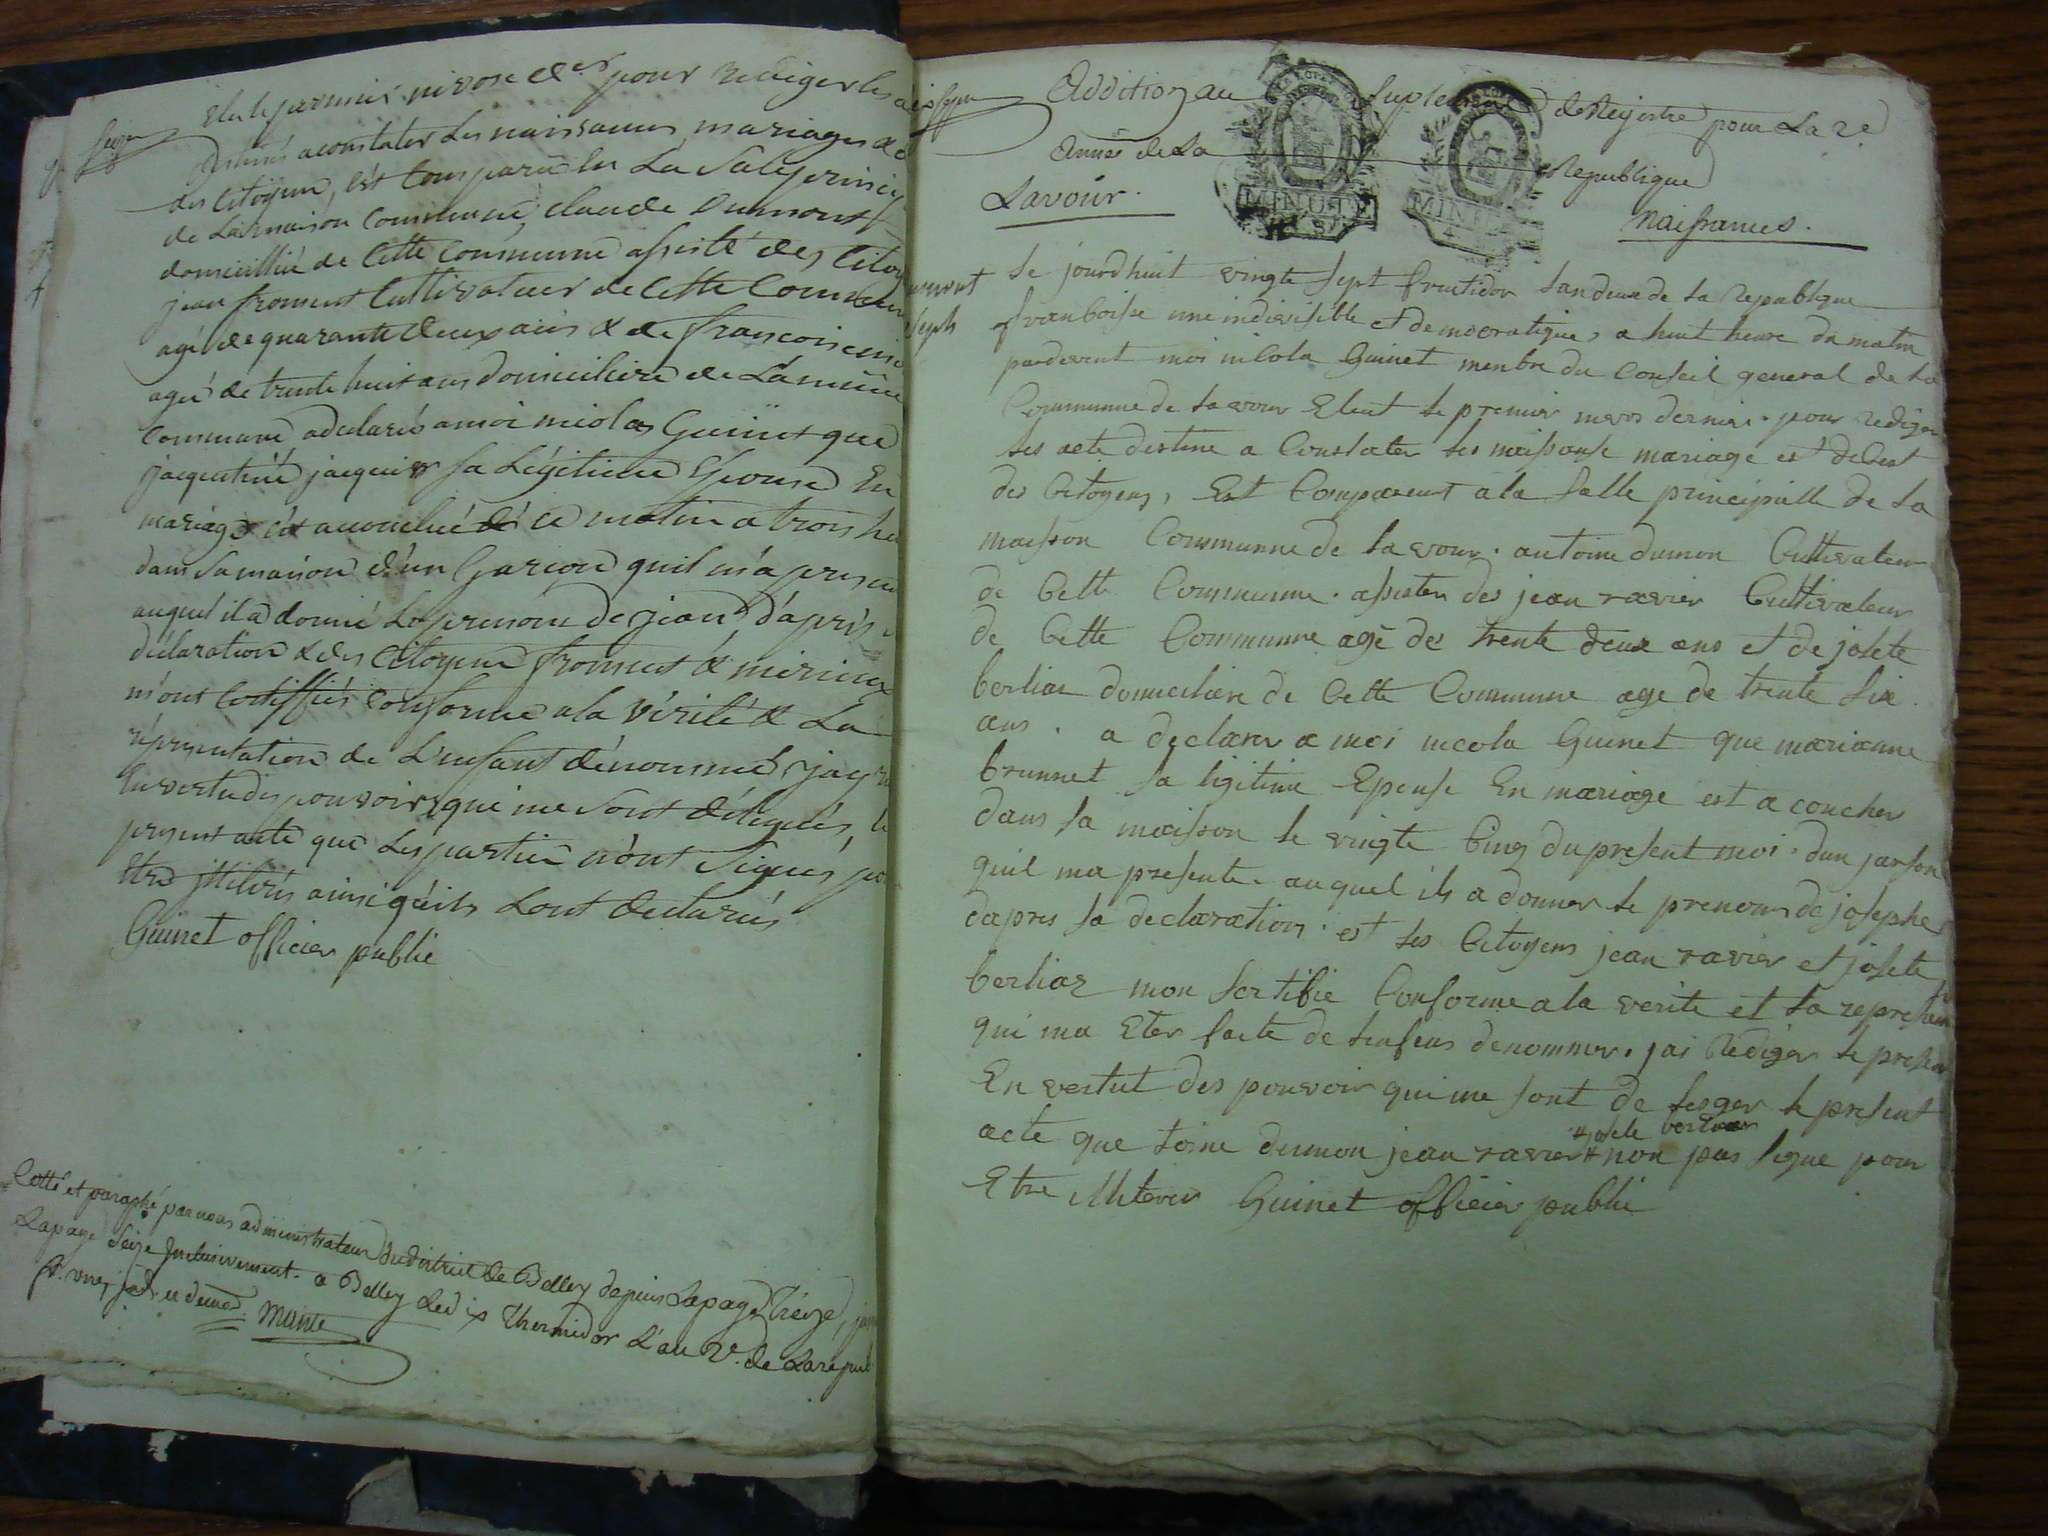 Elu le premier nivose der pour rediger les
destinés a constater les naissances, mariages &
des Citoÿens, est comparu en la Sale princip
de la maison commune, claude Dumont
domicillié de cette commune assisté des Cito
jean froment Cultivateur de cette Commune
agé de quarante deux ans & de francois
agé de trente huit ans domiciliers de la même
commune a declaré a moi nicolas Guinet que
jaquemine jacquier sa légitime Epouse En
mariage est accouchée ce matin a trois he
dans sa maison d'un Garcon qu'il m'a presen
auquel il a donné le prenom de jean d'après
déclaration & des Citoyens froment &
m'ont Certiffiés conforme a la vérité & La
réprésentation de L'enfant dénommé, jay r
En vertu des pouvoirs qui me sont délégués, le
present acte que les parties n'ont Signés, po
Etre jlliterés ainsi qu'ils sont declarés
Guinet officier public
Cotté et paraphé par nous administrateur du district de Belley depuis la page treize, ju
La page Seize Inclusivement. a Belley le dix Thermidor L'an 2e. de La repub
fr. une, ind. et democ. Mante
Addition au Suple de Regestre pour La 2e
Année de La Republique
Lavour. Naissances.
le jourdhuit vingte sept fructidor lan deux de la republique
franboisse une indivisible et democratique, a huit heure du matin
pardevent moi nicola Guinet menbre du Conseil general de la
Commune de lavour Eleut le premier nivos dernier. pour rediger
les acte destine a Constater les naissanse mariage est deSest
des Citoyens, Est Comparent a la Salle principalle de la
maisson Commune de lavour. antoine dumon Cultivateur
de Cette Commune. assisten des jean ravier Cultivateur
de Cette Commune agé des trente deux ans et de josete
berliaz domiciliere de Cette Commune age de trente six
ans. a declarer a moi nicola Guinet que marianne
brunnet sa ligitime Epouse En mariage est a coucher
dans sa maisson le vingte Cinq du present moi. dun jarson
quil ma presente. auquel ils a donner le prenom de josephe
dapres sa declaration. est les Citoyens jean ravier et josete
berliaz mon sertifie Conforme a la verite et la represten
qui ma Eter faite de lenfens denommer. jai Rediger le presen
En vertut des pouvoir qui me sont de leger le present
acte que toine dumon jean ravier # non pas signe pour
# josete berliaz
Etre illiterer Guinet officier public